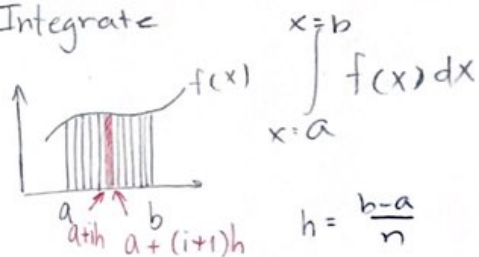 Integrate
x=b
∫ f(x) dx
x=a
f(x)
a b
a+ih a+(i+1)h
h = b-a/n